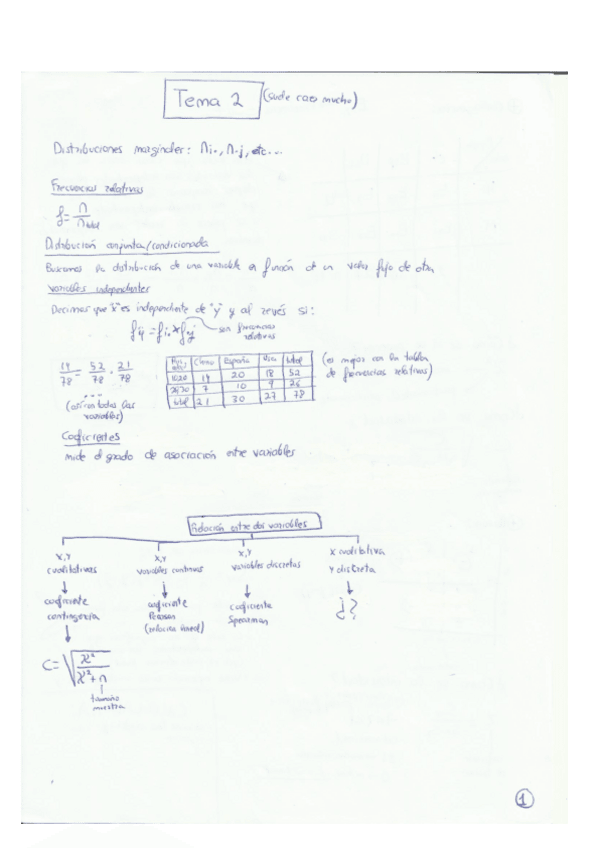 Tema 2 (suele caer mucho)
Distribuciones marginales: ni., n.j, etc...
Frecuencias relativas
f = n / n total
Distribución conjunta/condicionada
Buscamos la distribución de una variable en función de un valor fijo de otra
Variables independientes
Decimos que "x" es independiente de "y" y al revés si:
fij = fi. * f.j son frecuencias relativas
14/78 = 52/78 · 21/78
(así con todas las variables)
China España Usa total
10-20 14 20 18 52
7 10 9 26
total 21 30 27 78
(es mejor con la tabla de frecuencias relativas)
Coeficientes
mide el grado de asociación entre variables
Relación entre dos variables
X,Y cualitativas
X,Y variables continuas
X,Y variables discretas
X cualitativa Y discreta
coeficiente contingencia
coeficiente Pearson (relación lineal)
coeficiente Spearman
¿?
C = √ X² / X² + n
tamaño muestra
1